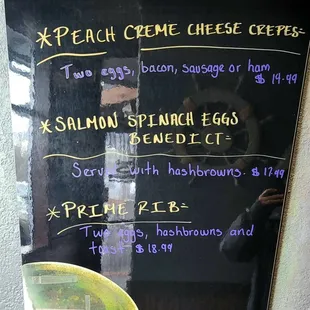 *PEACH CREME CHEESE CREPES=
Two eggs, bacon, sausage or ham
$ 14.99
*SALMON SPINACH EGGS
BENEDICT=
Serve with hashbrowns. $ 17.99
*PRIME RIB=
Two eggs, hashbrowns and
toast $ 18.99